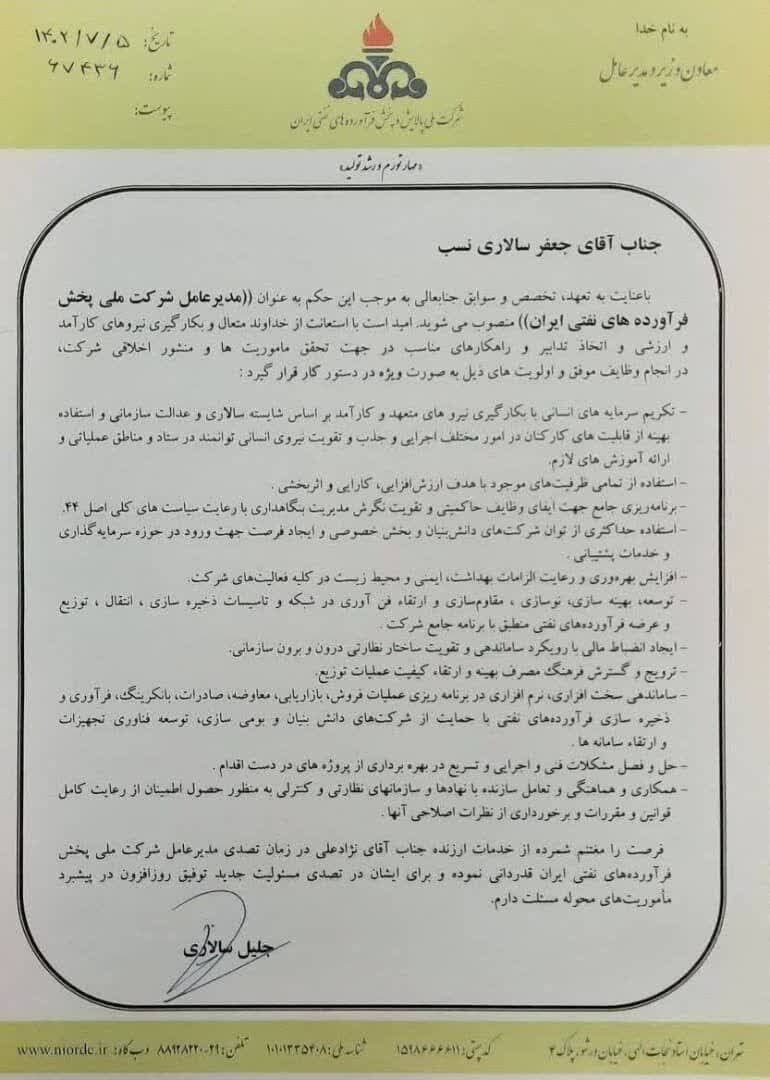 به نام خدا
معاون وزیر و مدیر عامل
شرکت ملی پالایش و پخش فرآورده های نفتی ایران
تاریخ: ۱۴۰۲/۷/۵
شماره: ۶۷۴۳۶
پیوست:
«مهار تورم و رشد تولید»
جناب آقای جعفر سالاری نسب
باعنایت به تعهد، تخصص و سوابق جنابعالی به موجب این حکم به عنوان ((مدیرعامل شرکت ملی پخش
فرآورده های نفتی ایران)) منصوب می شوید. امید است با استعانت از خداوند متعال و بکارگیری نیروهای کارآمد
و ارزشی و اتخاذ تدابیر و راهکارهای مناسب در جهت تحقق ماموریت ها و منشور اخلاقی شرکت،
در انجام وظایف موفق و اولویت های ذیل به صورت ویژه در دستور کار قرار گیرد :
- تکریم سرمایه های انسانی با بکارگیری نیرو های متعهد و کارآمد بر اساس شایسته سالاری و عدالت سازمانی و استفاده
بهینه از قابلیت های کارکنان در امور مختلف اجرایی و جذب و تقویت نیروی انسانی توانمند در ستاد و مناطق عملیاتی و
ارائه آموزش های لازم.
- استفاده از تمامی ظرفیت‌های موجود با هدف ارزش‌افزایی، کارایی و اثربخشی .
- برنامه‌ریزی جامع جهت ایفای وظایف حاکمیتی و تقویت نگرش مدیریت بنگاهداری با رعایت سیاست های کلی اصل ۴۴.
- استفاده حداکثری از توان شرکت‌های دانش‌بنیان و بخش خصوصی و ایجاد فرصت جهت ورود در حوزه سرمایه‌گذاری
و خدمات پشتیبانی .
- افزایش بهره‌وری و رعایت الزامات بهداشت، ایمنی و محیط زیست در کلیه فعالیت‌های شرکت.
- توسعه، بهینه سازی، نوسازی ، مقاوم‌سازی و ارتقاء فن آوری در شبکه و تاسیسات ذخیره سازی ، انتقال ، توزیع
و عرضه فرآورده‌های نفتی منطبق با برنامه جامع شرکت .
- ایجاد انضباط مالی با رویکرد ساماندهی و تقویت ساختار نظارتی درون و برون سازمانی.
- ترویج و گسترش فرهنگ مصرف بهینه و ارتقاء کیفیت عملیات توزیع.
- ساماندهی سخت افزاری، نرم افزاری در برنامه ریزی عملیات فروش، بازاریابی، معاوضه، صادرات، بانکرینگ، فرآوری و
ذخیره سازی فرآورده‌های نفتی با حمایت از شرکت‌های دانش بنیان و بومی سازی، توسعه فناوری تجهیزات
و ارتقاء سامانه ها .
- حل و فصل مشکلات فنی و اجرایی و تسریع در بهره برداری از پروژه های در دست اقدام .
- همکاری و هماهنگی و تعامل سازنده با نهادها و سازمانهای نظارتی و کنترلی به منظور حصول اطمینان از رعایت کامل
قوانین و مقررات و برخورداری از نظرات اصلاحی آنها .
فرصت را مغتنم شمرده از خدمات ارزنده جناب آقای نژادعلی در زمان تصدی مدیرعامل شرکت ملی پخش
فرآورده‌های نفتی ایران قدردانی نموده و برای ایشان در تصدی مسئولیت جدید توفیق روزافزون در پیشبرد
مأموریت‌های محوله مسئلت دارم.
جلیل سالاری
تهران، خیابان استاد نجات الهی، خیابان ورشو، پلاک ۴ کد پستی: ۱۵۹۸۶۶۶۶۱۱ شناسه ملی: ۱۰۱۰۱۳۳۵۴۰۸ تلفن: ۲۹-۸۸۹۲۸۲۲۰ وب گاه: www.niordc.ir